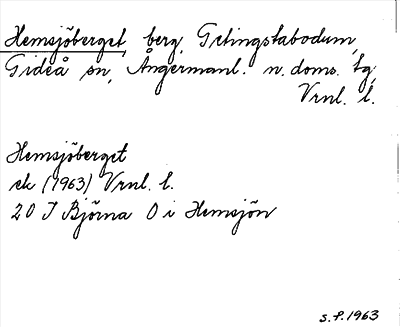 Hemsjöberget, berg, Getingstabodum,
Gideå sn, Ångermanl. n. doms. tg,
Vrnl. l.
Hemsjöberget
ek (1963) Vrnl. l.
20 J Björna O i Hemsjön
S.P. 1963